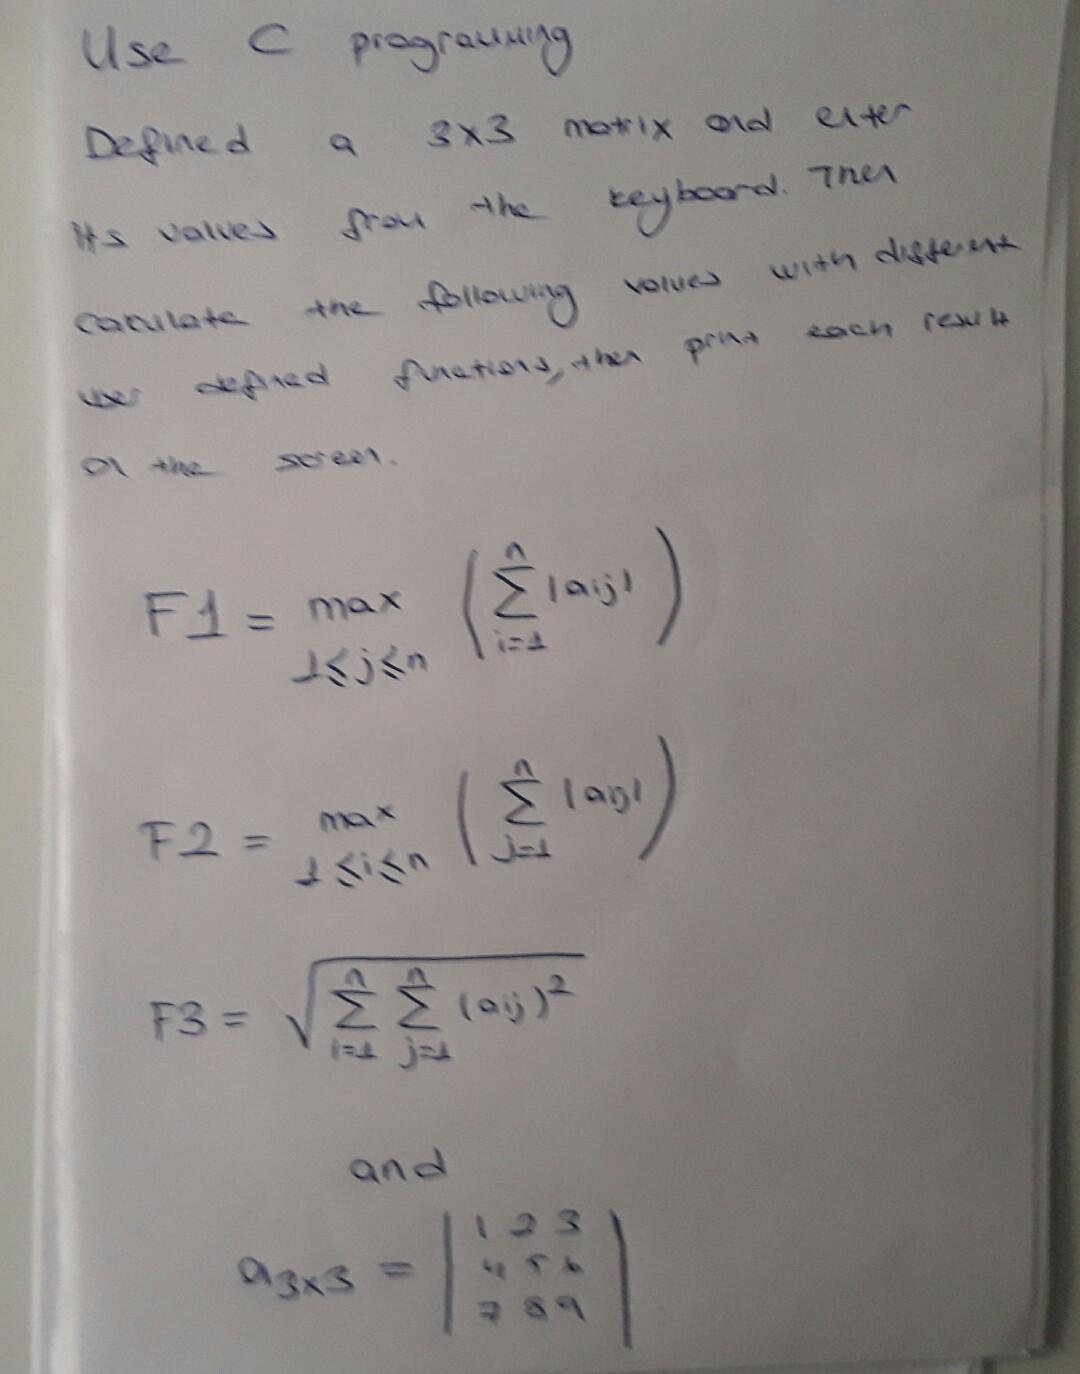 Use C programming
Defined a 3x3 matrix and enter
its values from the keyboard. Then
calculate the following values with different
user defined functions, then print each result
on the screen.
F1 = max 1≤j≤n ( n Σ i=1 |aij| )
F2 = max 1≤i≤n ( n Σ j=1 |aij| )
F3 = √ n Σ i=1 n Σ j=1 (aij)²
and
a3x3 = | 1 2 3
4 5 6
7 8 9 |